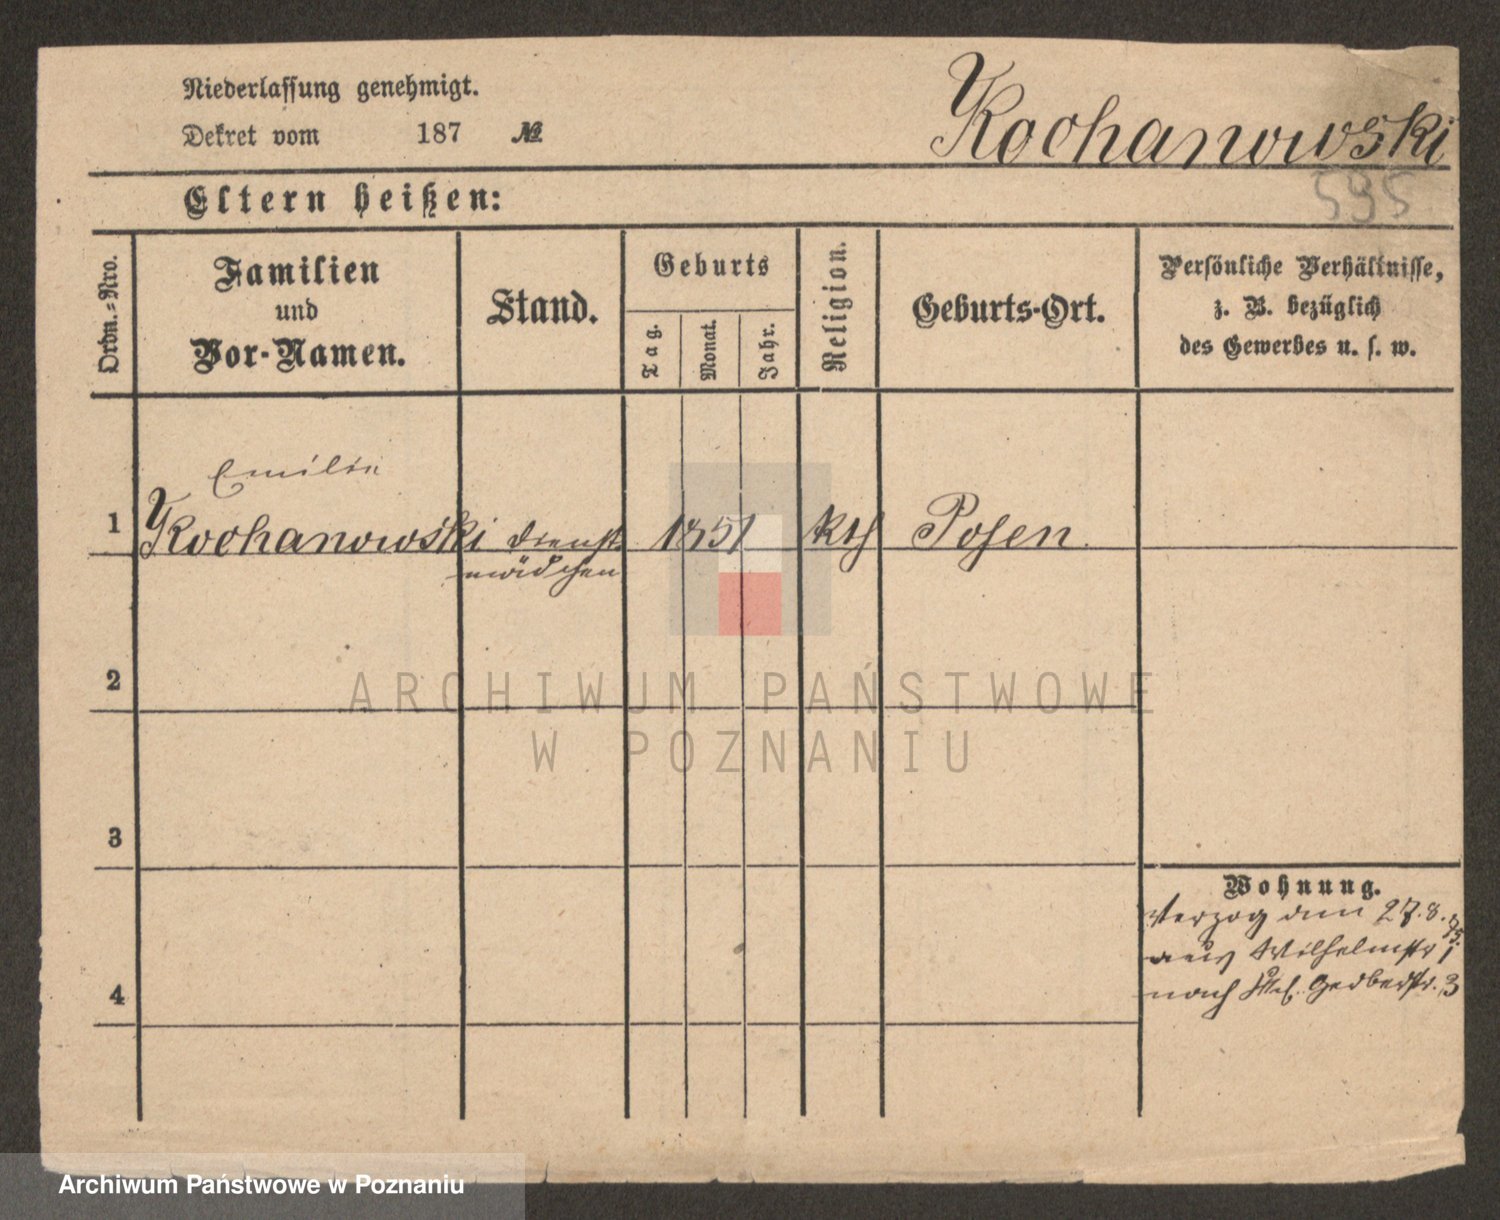 Niederlassung genehmigt.
Dekret vom 187 №
Kochanowski
595
Eltern heißen:
Ordn.=Nro.
Familien
und
Vor-Namen.
Stand.
Geburts
Tag.
Monat.
Jahr.
Religion.
Geburts-Ort.
Persönliche Verhältnisse,
z. B. bezüglich
des Gewerbes u. s. w.
Emilie
1 Kochanowski Dienst 1851 kth Posen
mädchen
2
ARCHIWUM PAŃSTWOWE
W POZNANIU
3
Wohnung.
Verzog den 27.8.75.
aus Wilhelmstr 1
nach 3
4
Archiwum Państwowe w Poznaniu